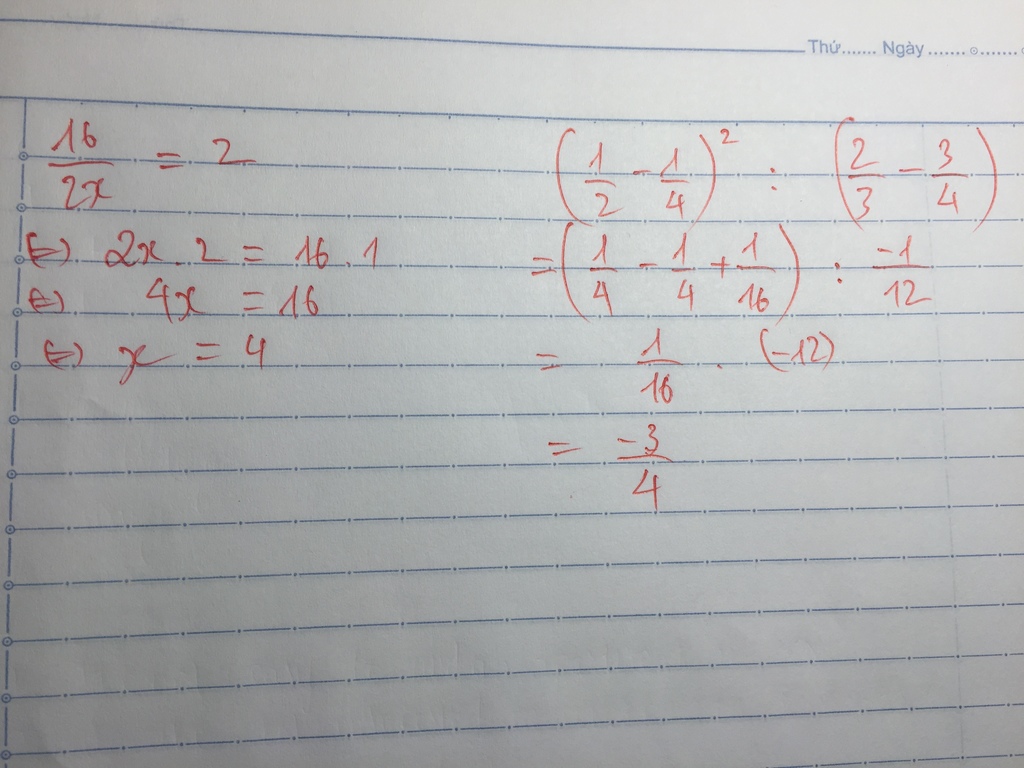 Thứ....... Ngày ....... .......
16/2x = 2
(=) 2x . 2 = 16 . 1
(=) 4x = 16
(=) x = 4
(1/2 - 1/4)² : (2/3 - 3/4)
= (1/4 - 1/4 + 1/16) : -1/12
= 1/16 . (-12)
= -3/4